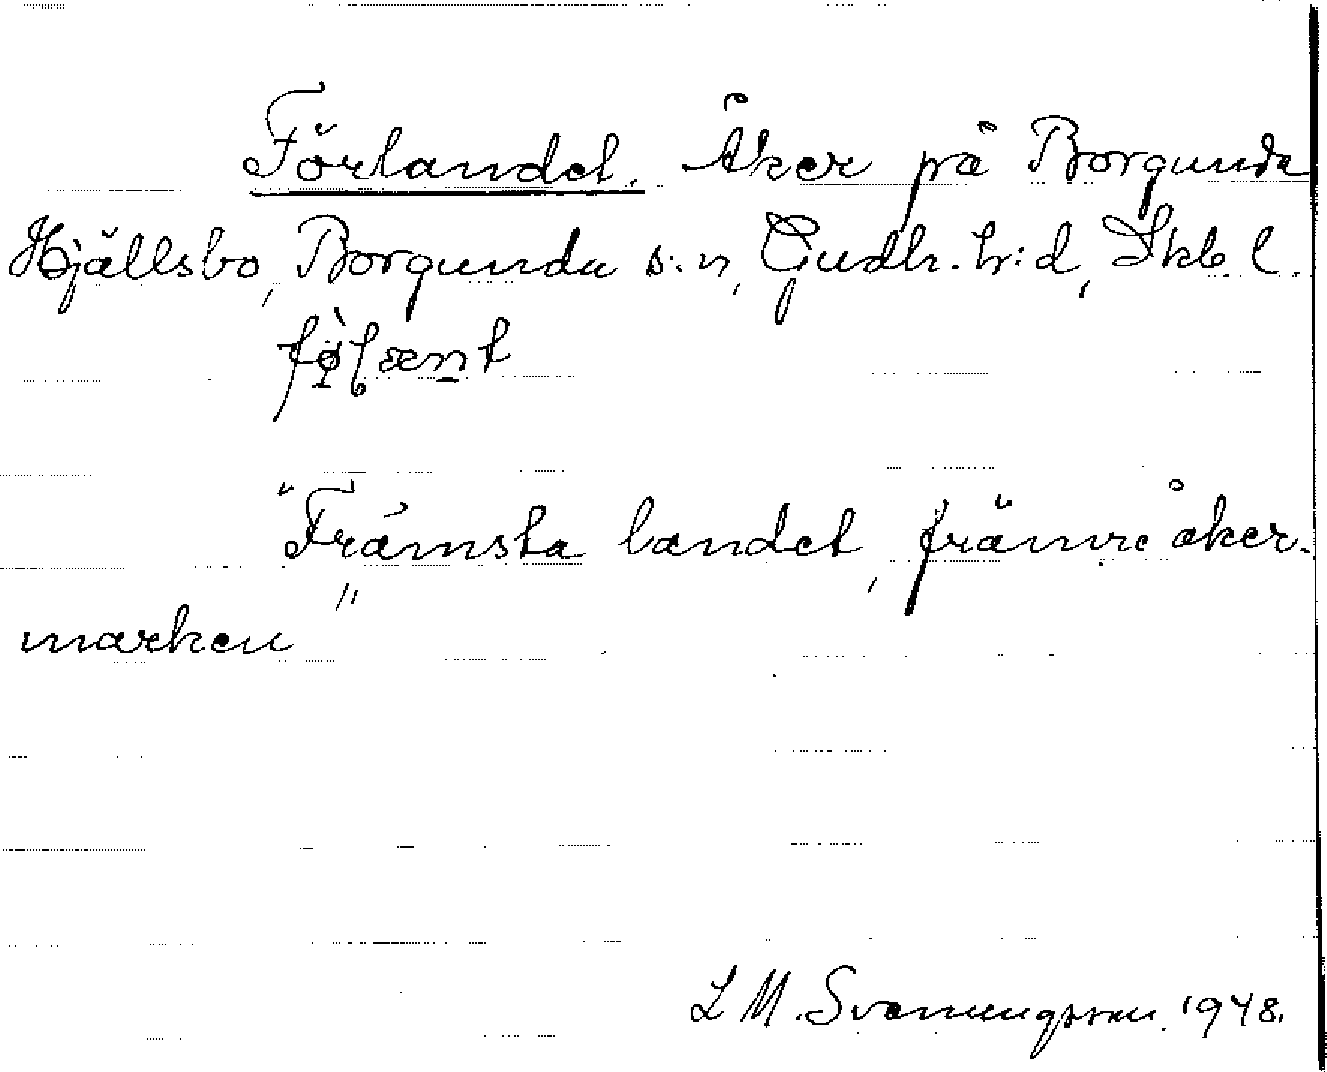 Förlandet. Åker på Borgunda
Hjällsbo, Borgunda s:n, Gudh. h:d, Skb. l.
"Främsta landet, främre åker-
marken"
L M. Svenungsson 1948.